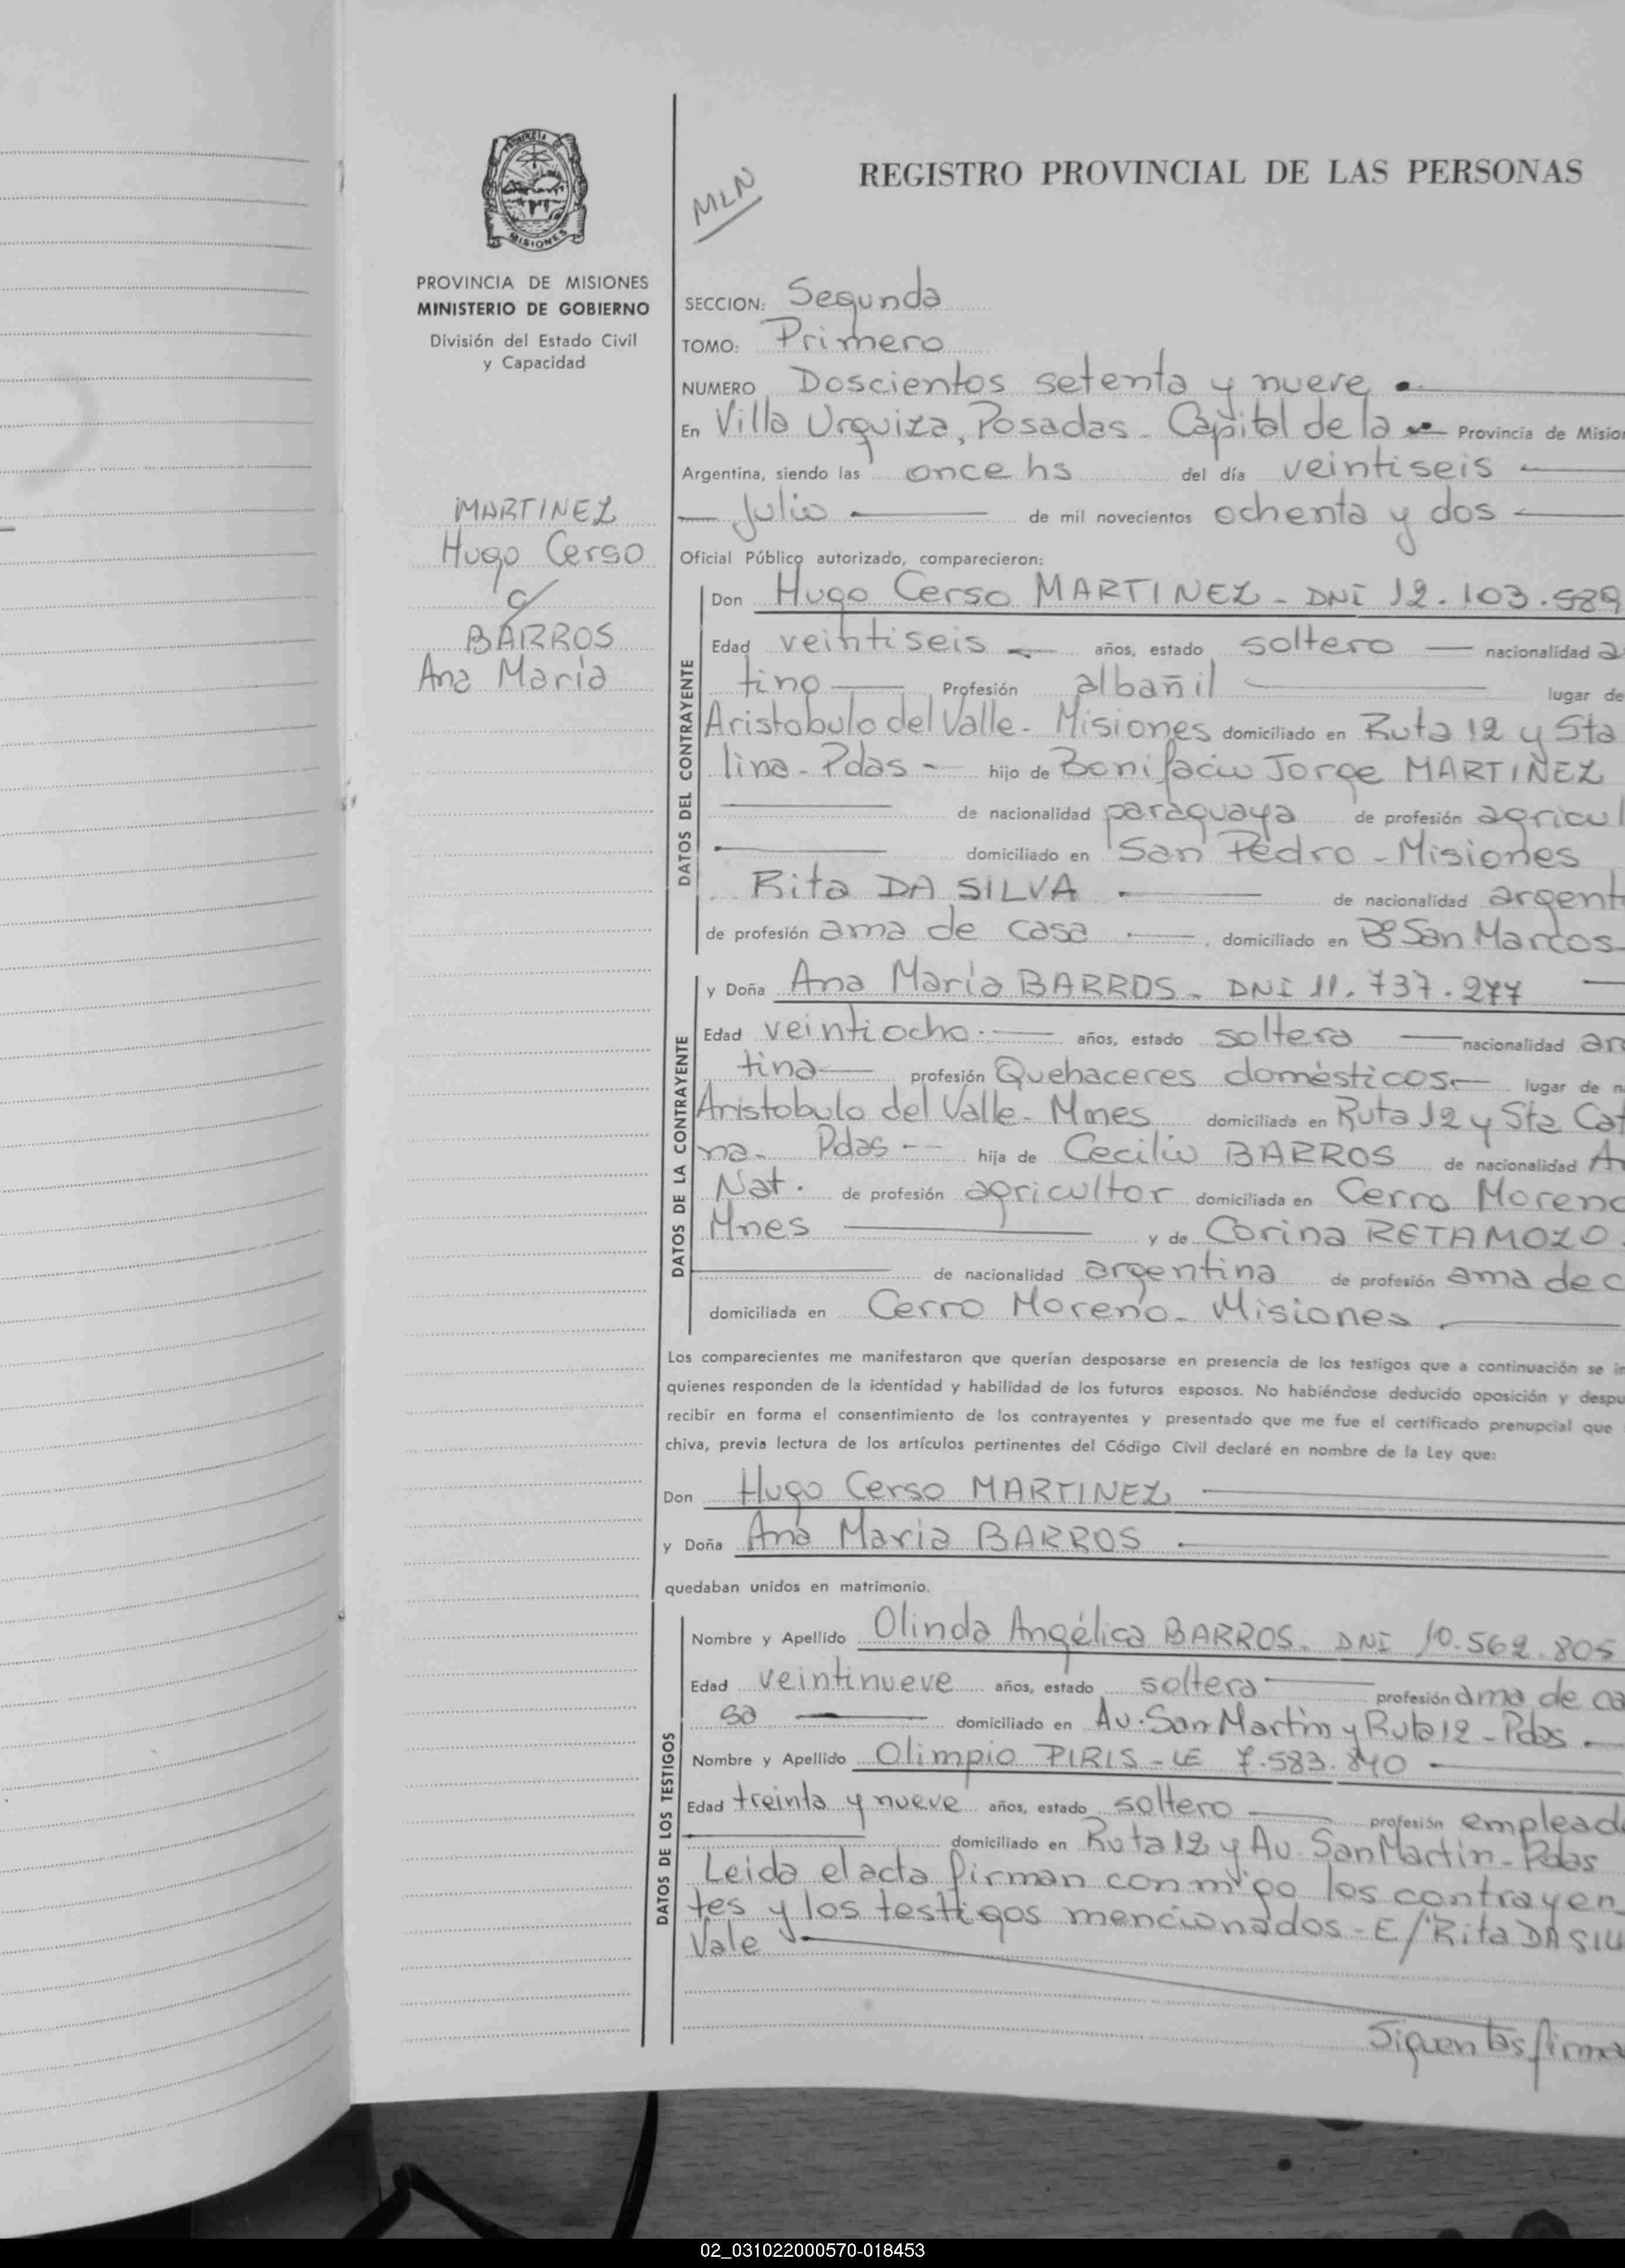 PROVINCIA DE MISIONES
MINISTERIO DE GOBIERNO
División del Estado Civil
y Capacidad
MARTINEZ
Hugo Cerso
c/
BARROS
Ana María
MLN
REGISTRO PROVINCIAL DE LAS PERSONAS
SECCION: Segunda
TOMO: Primero
NUMERO Doscientos setenta y nueve
En Villa Urquiza, Posadas - Capital de la Provincia de Mision
Argentina, siendo las once hs del día veintiseis
Julio de mil novecientos ochenta y dos
Oficial Público autorizado, comparecieron:
DATOS DEL CONTRAYENTE
Don Hugo Cerso MARTINEZ - DNI 12.103.589
Edad veintiseis años, estado soltero nacionalidad a
tino Profesión albañil lugar de
Aristobulo del Valle - Misiones domiciliado en Ruta 12 y Sta
lina - Pdas hijo de Bonifacio Jorge MARTINEZ
de nacionalidad paraguaya de profesión agricul
domiciliado en San Pedro - Misiones
Rita DA SILVA de nacionalidad argent
de profesión ama de casa, domiciliado en Bº San Marcos
DATOS DE LA CONTRAYENTE
y Doña Ana María BARROS - DNI 11.737.277
Edad veintiocho años, estado soltera nacionalidad ar
tina profesión Quehaceres domésticos lugar de n
Aristobulo del Valle - Mnes domiciliada en Ruta 12 y Sta Cat
na - Pdas hija de Cecilio BARROS de nacionalidad A
Nat. de profesión agricultor domiciliada en Cerro Moreno
Mnes y de Corina RETAMOZO
de nacionalidad argentina de profesión ama de c
domiciliada en Cerro Moreno - Misiones
Los comparecientes me manifestaron que querían desposarse en presencia de los testigos que a continuación se in
quienes responden de la identidad y habilidad de los futuros esposos. No habiéndose deducido oposición y despu
recibir en forma el consentimiento de los contrayentes y presentado que me fue el certificado prenupcial que
chiva, previa lectura de los artículos pertinentes del Código Civil declaré en nombre de la Ley que:
Don Hugo Cerso MARTINEZ
y Doña Ana Maria BARROS
quedaban unidos en matrimonio.
DATOS DE LOS TESTIGOS
Nombre y Apellido Olinda Angélica BARROS - DNI 10.562.805
Edad veintinueve años, estado soltera profesión ama de ca
sa domiciliado en Av. San Martin y Ruta 12 - Pdas
Nombre y Apellido Olimpio PIRIS - LE 7.583.840
Edad treinta y nueve años, estado soltero profesión emplead
domiciliado en Ruta 12 y Av. San Martin - Pdas
Leida el acta firman conmigo los contrayen
tes y los testigos mencionados - E/Rita DA SIL
Vale
Siguen las firma
02_031022000570-018453